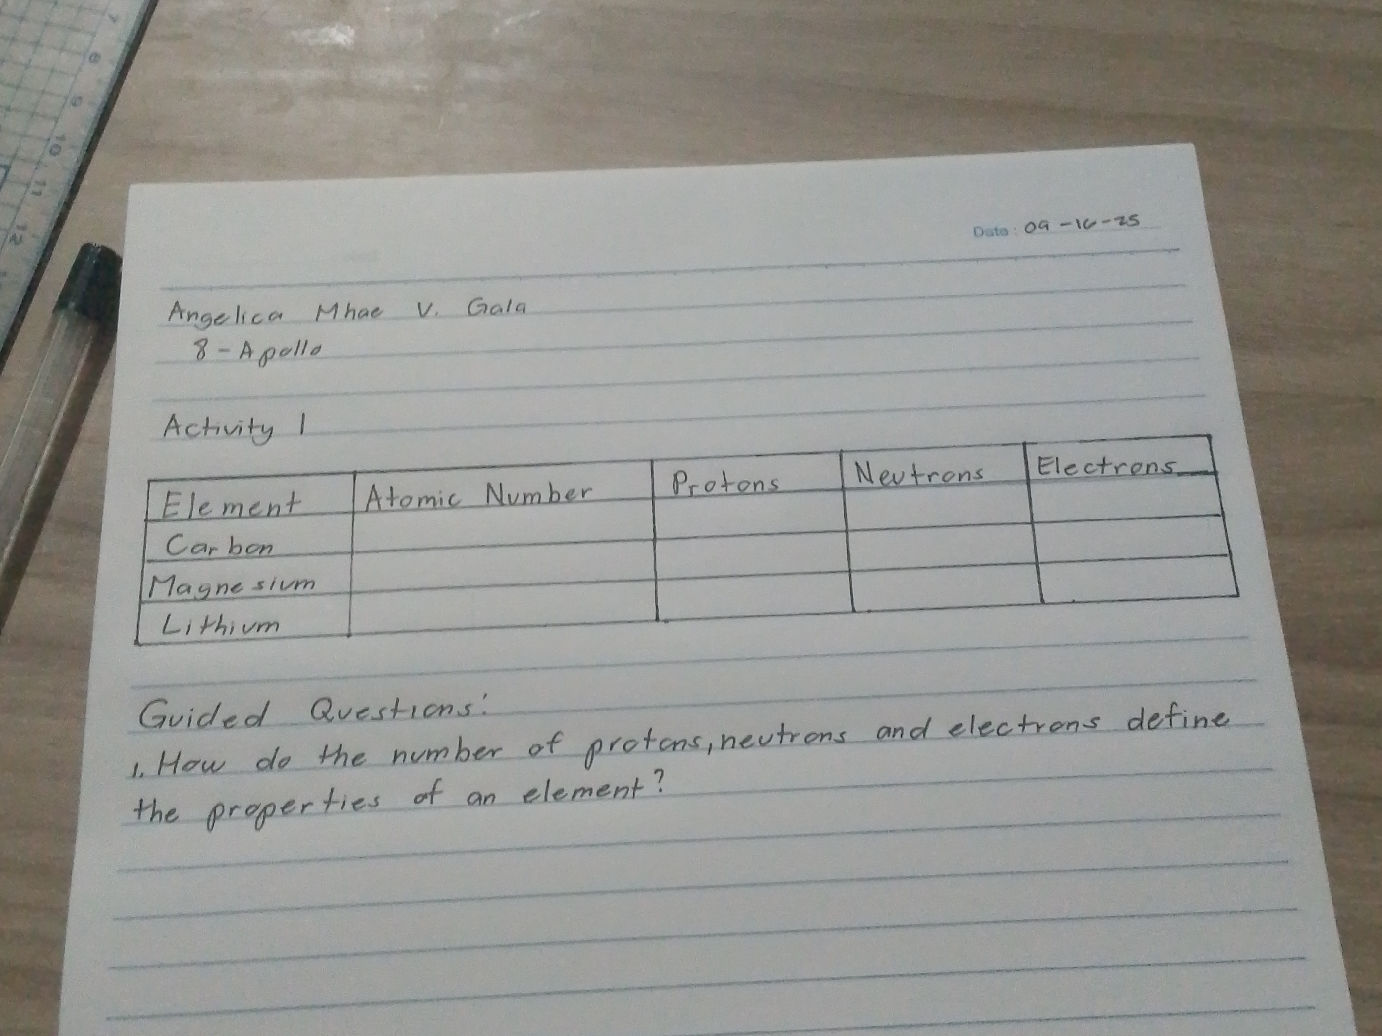 7
8
9
10
11
12
Date: 09-16-25
Angelica Mhae V. Gala
8-Apollo
Activity 1
Element Atomic Number Protons Neutrons Electrons
Carbon
Magnesium
Lithium
Guided Questions:
1. How do the number of protons, neutrons and electrons define
the properties of an element?